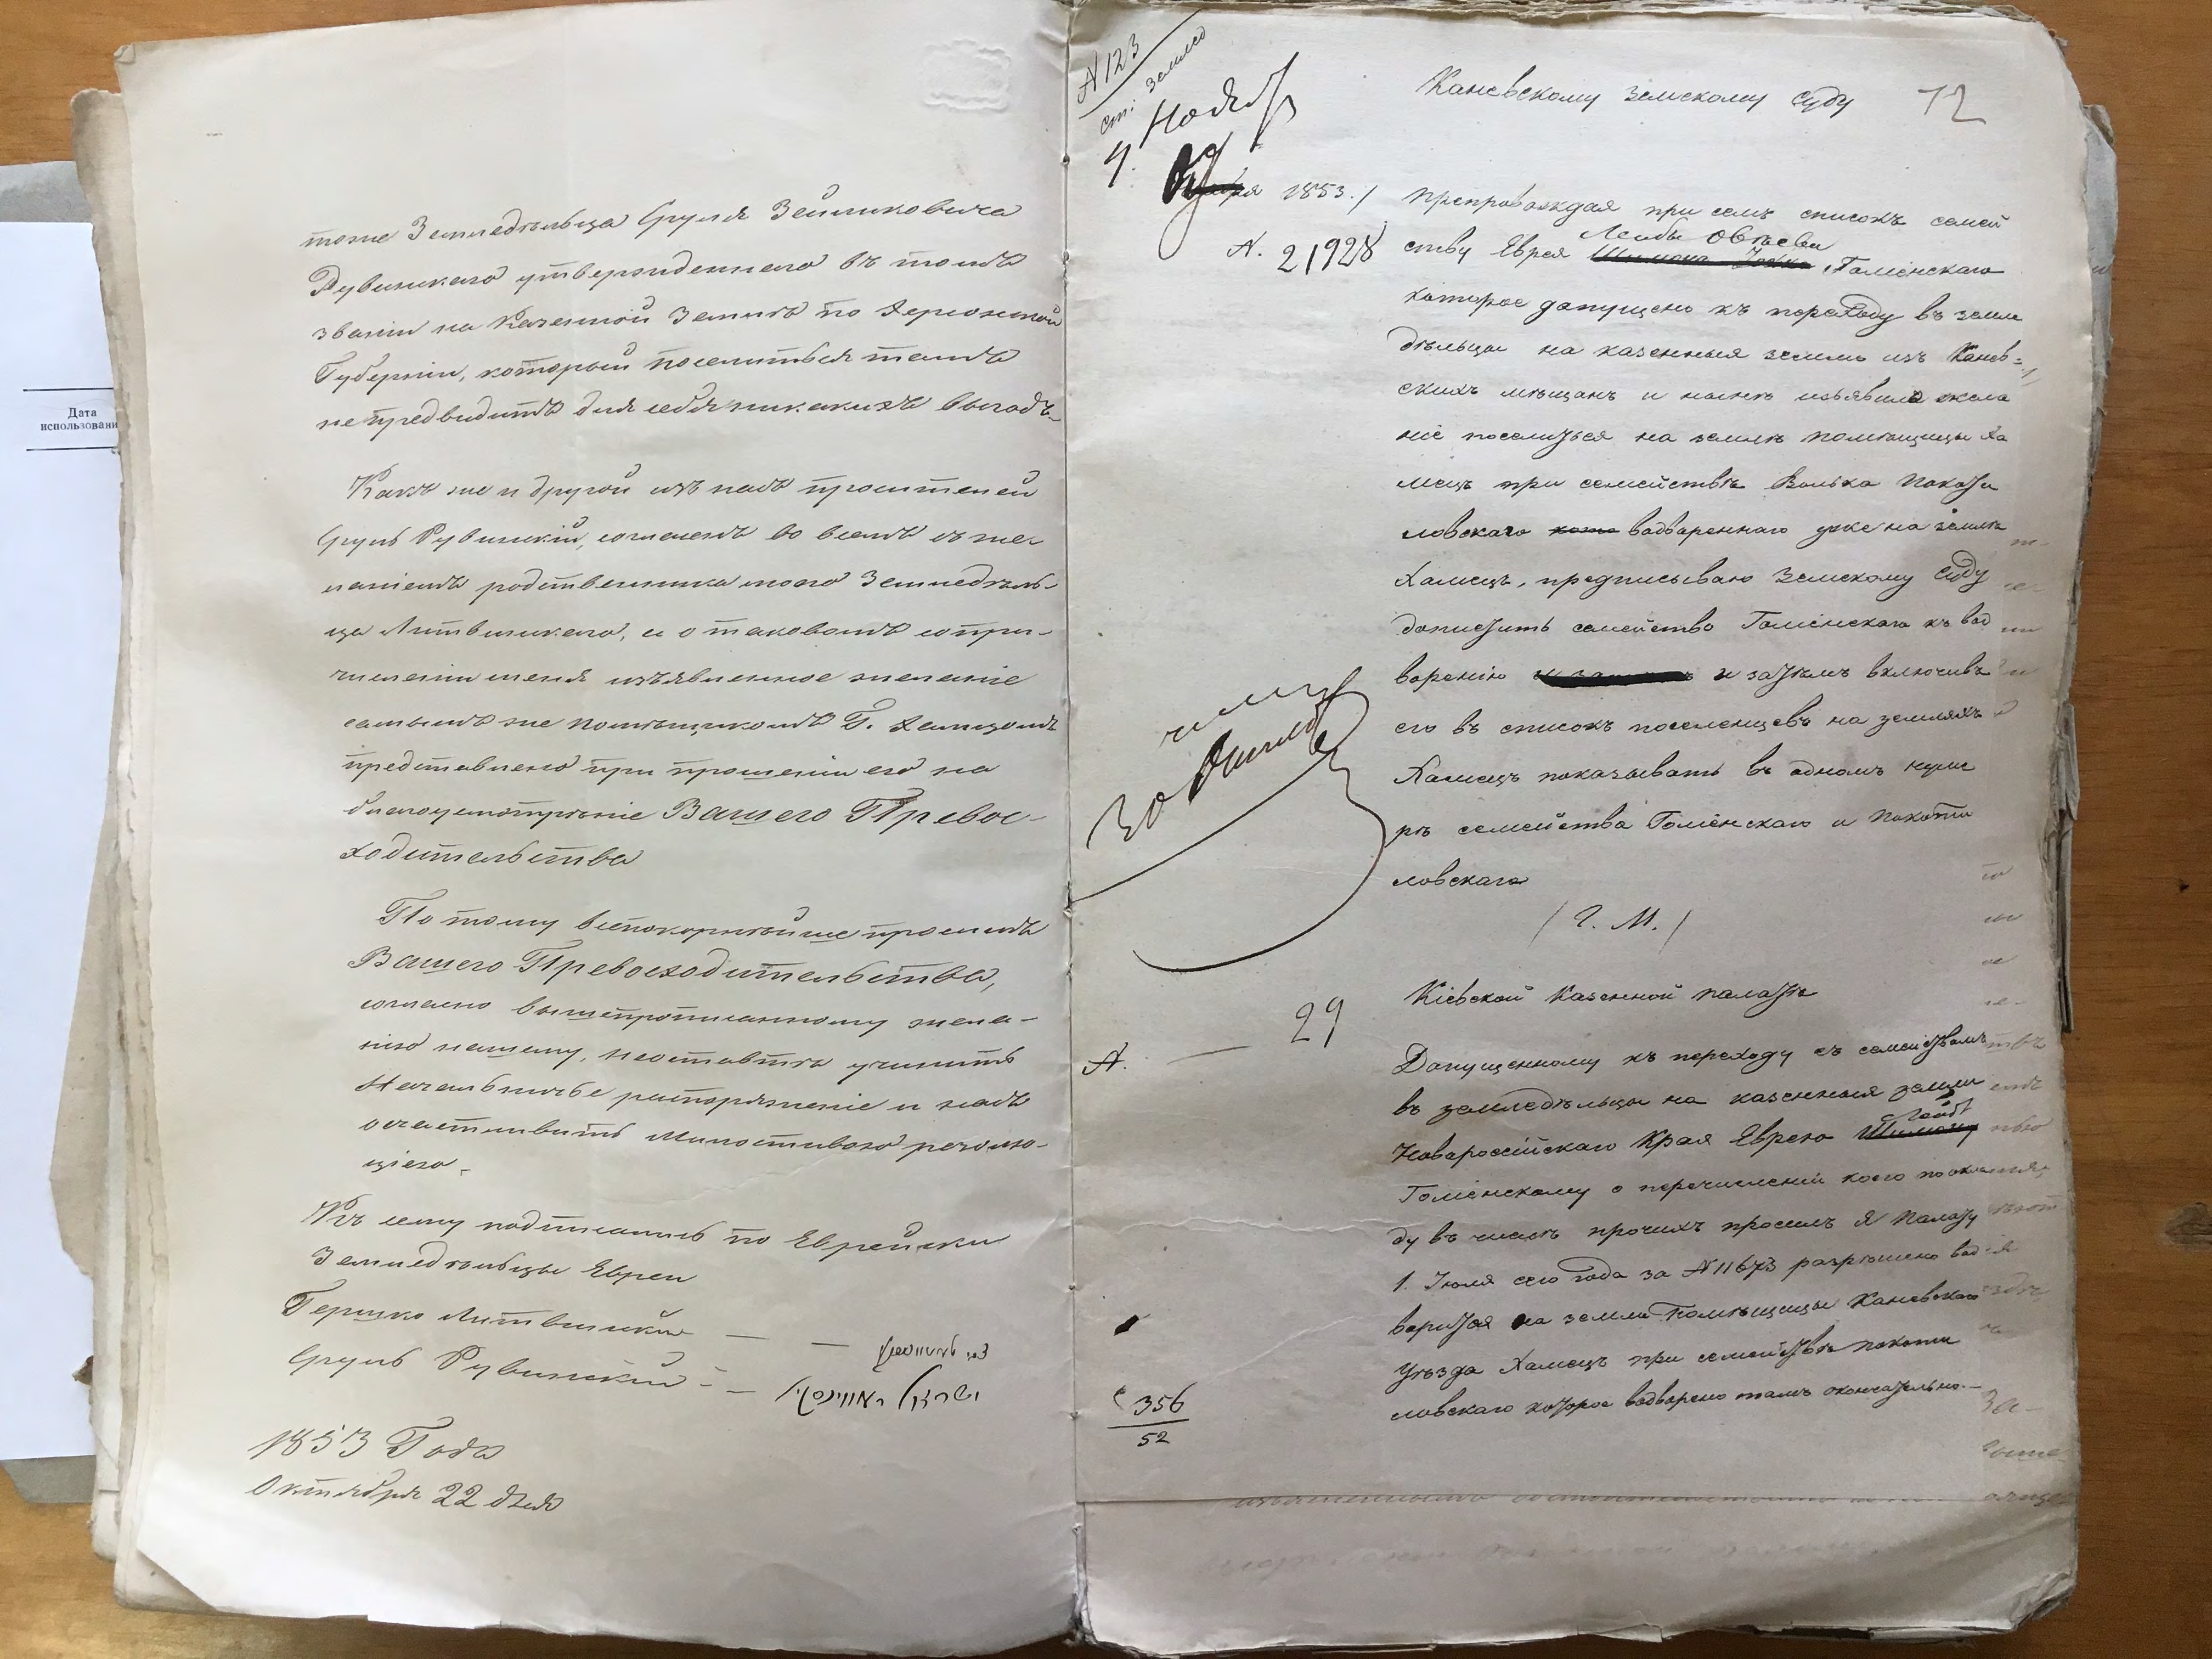 Дата
использовани
тоже Земледѣльца Сруля Зейликовича
Рувинскаго утвержденнаго въ томъ
званіи на Казенной Землѣ по Херсонской
Губерніи, который поселиться тамъ
непредвидитъ для себя никакихъ выгодъ.
Какъ же и другой изъ насъ просителей
Сруль Рувинскій, согласенъ во всемъ съ же-
ланіемъ родственника моего Земледѣль-
ца Литвинскаго, и о таковомъ сопри-
численіи меня изъявленное желаніе
самымъ же помѣщикомъ Г. Хамцомъ
представлено при прошеніи его на
благоусмотрѣніе Вашего Превос-
ходительства
По тому всепокорнѣйше просимъ
Вашего Превосходительства,
согласно вышепрописанному жела-
нію нашему, неоставить учинить
Начальничье распоряженіе и насъ
осчастливить Милостивою резолю-
ціею.
Къ сему подписались по Еврейски
Земледѣльцы Евреи
Гершко Литвинскій — —
Сруль Рувинскій — — ישראל ראווינסקי
1853 Года
Октября 22 дня
N 123
72
Каневскому Земскому Суду
4. Нояб
1853./
N. 21928
Препровождая при семъ списокъ семей
ству Еврея Лейбы Овсѣева Голіенскаго
которое допущено къ переходу въ земле
дѣльцы на казенныя земли изъ Канев=
скихъ мѣщанъ и нынѣ изъявило жела
ніе поселиться на землѣ помѣщицы Ха
мецъ при семействѣ Волька Покоти
ловскаго водвореннаго уже на землѣ
Хамецъ, предписываю Земскому Суду
допустить семейство Голіенскаго къ вод
воренію и затѣмъ включивъ
его въ списокъ поселенцевъ на земляхъ
Хамецъ показывать въ одномъ нуме
рѣ семейства Голіенскаго и Покоти
ловскаго
/ Г. М. /
29
Кіевской Казенной палатѣ
N.
Допущенному къ переходу съ семействомъ
въ земледѣльцы на казенныя земли
Новороссійскаго Края Еврею Лейбѣ
Голіенскому о перечисленіи коего по окла
ду въ числѣ прочихъ просилъ я Палату
1. Іюля сего года за N 11673 разрѣшено вод
вориться на земли Помѣщицы Каневскаго
Уѣзда Хамецъ при семействѣ Покоти
ловскаго которое водворено тамъ окончательно.—
356
52